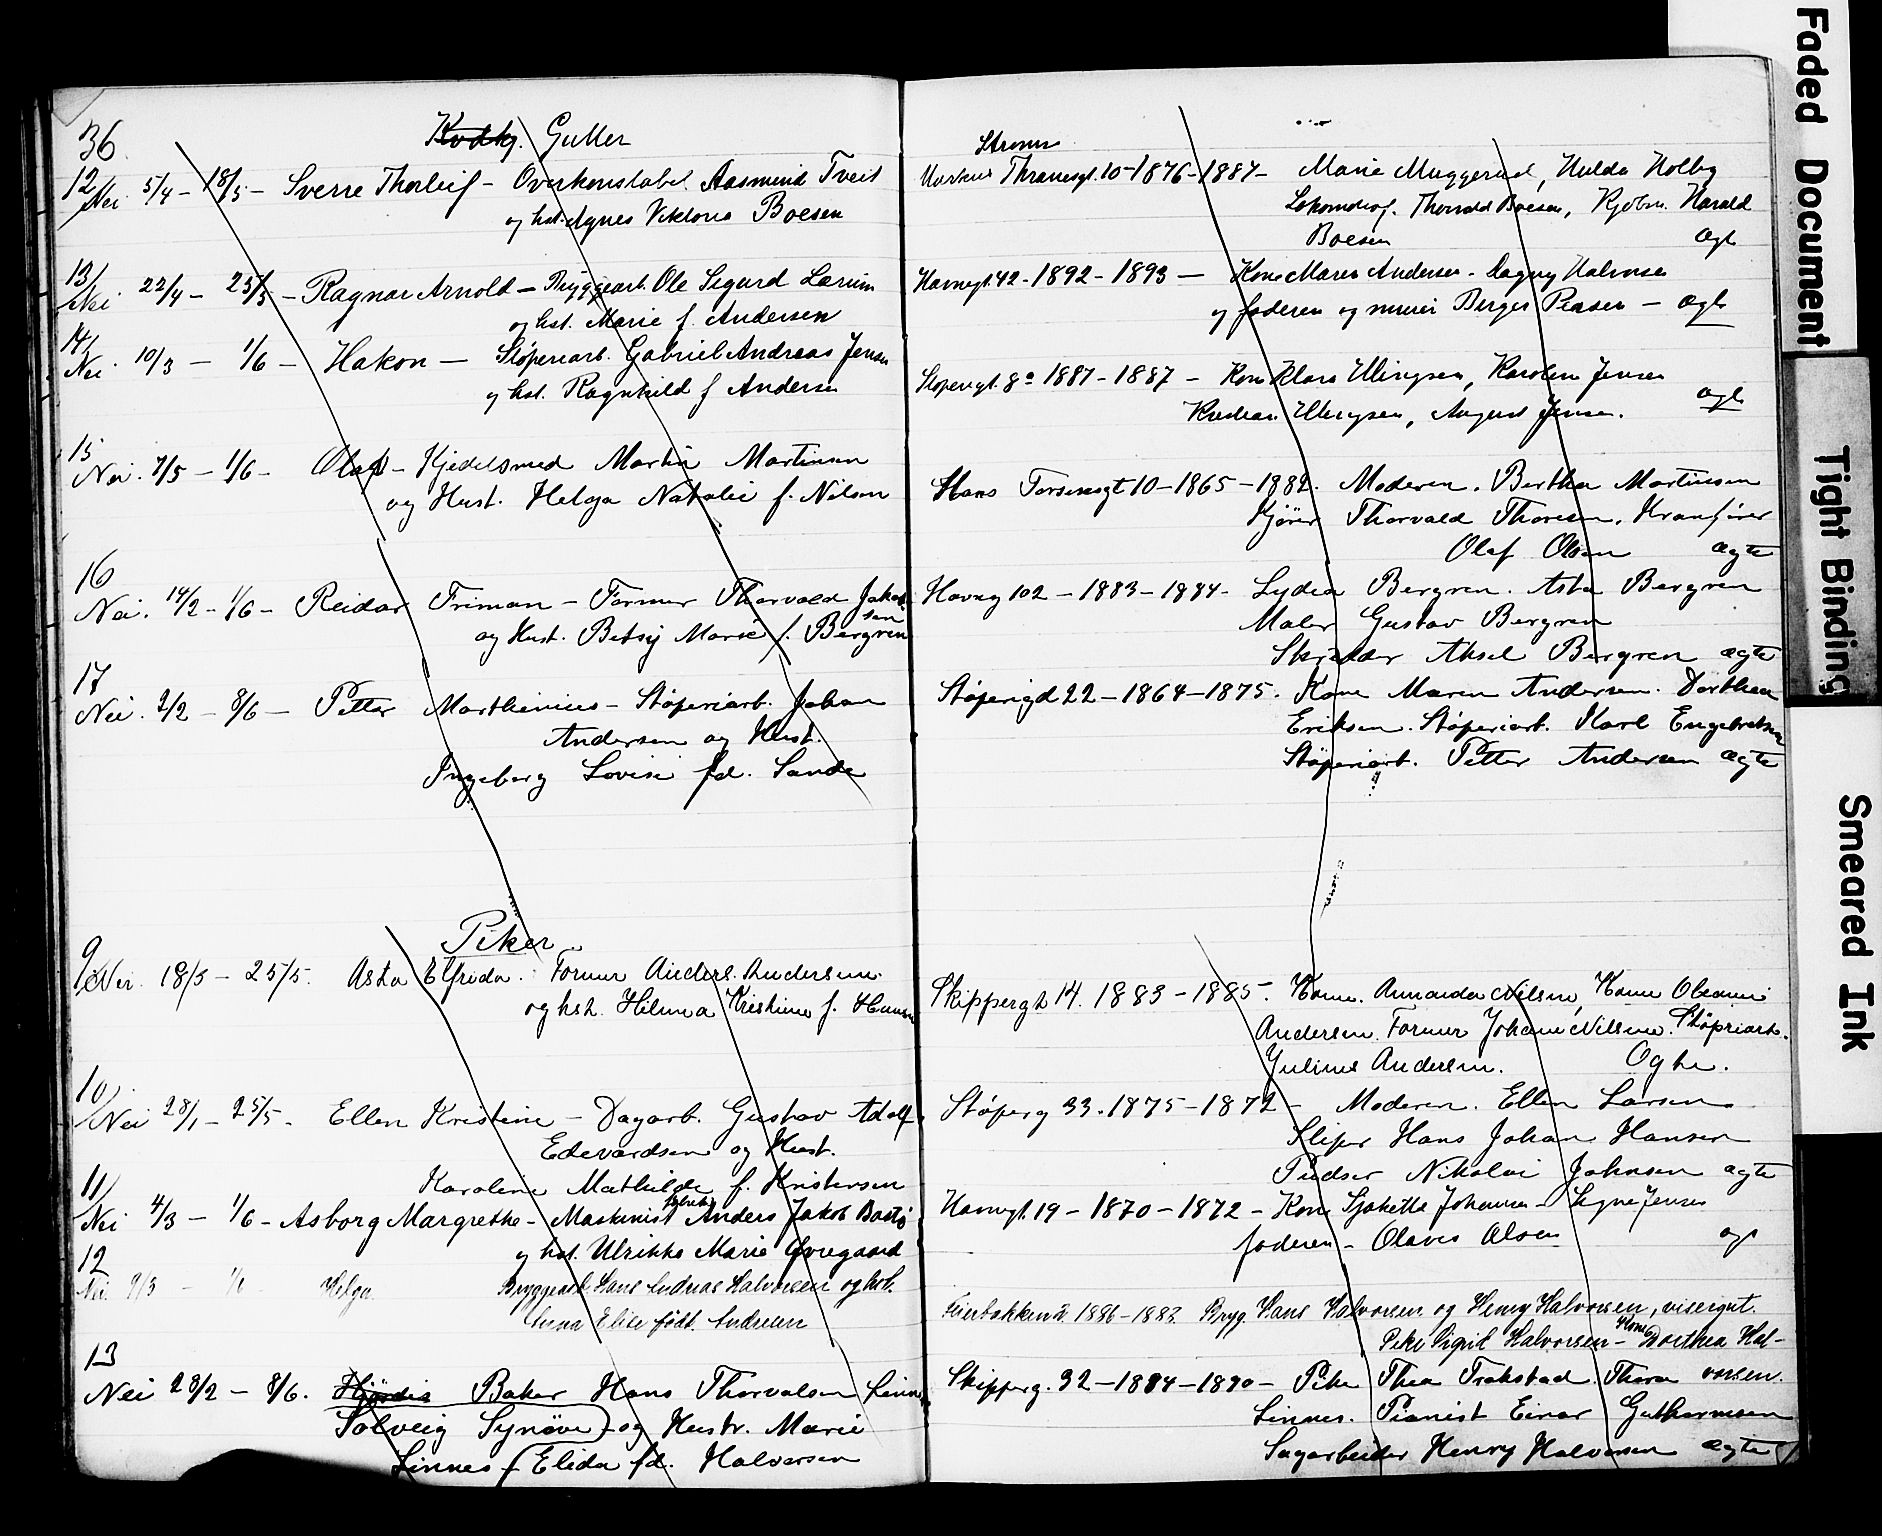 36
Gutter
12
Nei 5/4 - 18/5 - Sverre Thorleif - Overkonstabel Aasmund Tveit
og hst. Agnes Viktoria Boesen
13
Nei 22/4 - 25/5 - Ragnar Arnold - Bryggearb. Ole Sigurd Larum
og hst. Marie f. Andersen
14
Nei 10/3 - 1/6 - Hakon - Støperiarb. Gabriel Andreas Jensen
og hst. Ragnhild f Andersen
15
Nei. 7/5 - 1/6 - Olaf - Kjedelsmed Martin Martinsen
og Hust. Helga Natalie f. Nilsen
16
Nei. 14/2 - 1/6 - Reidar Friman - Former Thorvald Jakob
sen
og Hust. Betsy Marie f. Bergren
17
Nei. 2/2 - 8/6 - Petter Marthinius - Støperiarb. Johan
Andersen og Hust.
Ingeborg Lovise fd. Sande
Piker
9
Nei. 18/3 - 25/5. Asta Elfrida. Former Anders Andersen
og hst. Hilma Kristine f. Hansen
10
Nei 28/1 - 25/5 - Ellen Kristine - Dagarb. Gustav Adolf
Edevardsen og Hust.
Karoline Mathilde f. Kristensen
11
Nei 4/3 - 1/6 - Asborg Margrethe - Maskinist Anders Jakob Bastø
og hst. Ulrikke Marie Øvregaard
12
Nei 9/3 - 1/6 Helga Bryggearb. Hans Andreas Halvorsen og hst.
Anna Elise født Andresen
13
Nei 28/2 - 8/6. Hjørdis Baker Hans Thorvalsen Linnes
Solveig Synøve - og Hustr. Marie
Linnes Elida fd. Halvorsen
Strømm
Markus Thranesgt. 10 - 1876 - 1887 - Marie Muggerud, Hulda Holby
Lokomotivf. Thorvald Boesen, Kjøbm. Harald
Boesen Ægt
Havnegt. 42 - 1892 - 1893 - Kone Maren Andersen - Dagny Halvorsen
og faderen og murer Berger Pedersen - Ægt
Støperigt. 8a 1887 - 1887 - Kone Klara Ellingsen, Karoline Jensen
Ellingsen, August Jensen. Ægt
Hans 10 - 1865 - 1882. Moderen. Bertha Martinsen
Kjører Thorvald Thoresen. Kranfører
Olaf Olsen ægte
Havneg 102 - 1883 - 1884 - Lydia Bergren. Asta Bergren
Maler Gustav Bergren
Skrædder Aksel Bergren ægte
Støperigd 22 - 1864 - 1875. Kone Maren Andersen. Dorthea
Eriksen. Støperiarb. Karl Engebretsen
Støperiarb. Petter Andersen ægte
Skippergt 14. 1883 - 1885. Kone. Amanda Nilsen, Kone
Andersen. Former Johan Nilsen. Støperiarb.
Julius Andersen. Ægte.
Støperg 33. 1875 - 1872 - Moderen. Ellen Larsen
Sliper Hans Johan Hansen
Pudser Nikolai Johnsen ægte
Havnegt. 19 - 1870 - 1872 - Kone Johansen - Signe Jensen
faderen - Olaves Olsen
1886 - 1883. Brygg. Hans Halvorsen og Henry Halvorsen, visergut.
Pike Sigrid Halvorsen - Kone Dorthea Hal-
vorsen.
Skipperg. 32 - 1884 - 1890 - Pike Thea Trøkstad. Thora
Linnes. Pianist Einar Guthormsen
Sagarbeider Henry Halvorsen ægte
Faded Document
Tight Binding
Smeared Ink